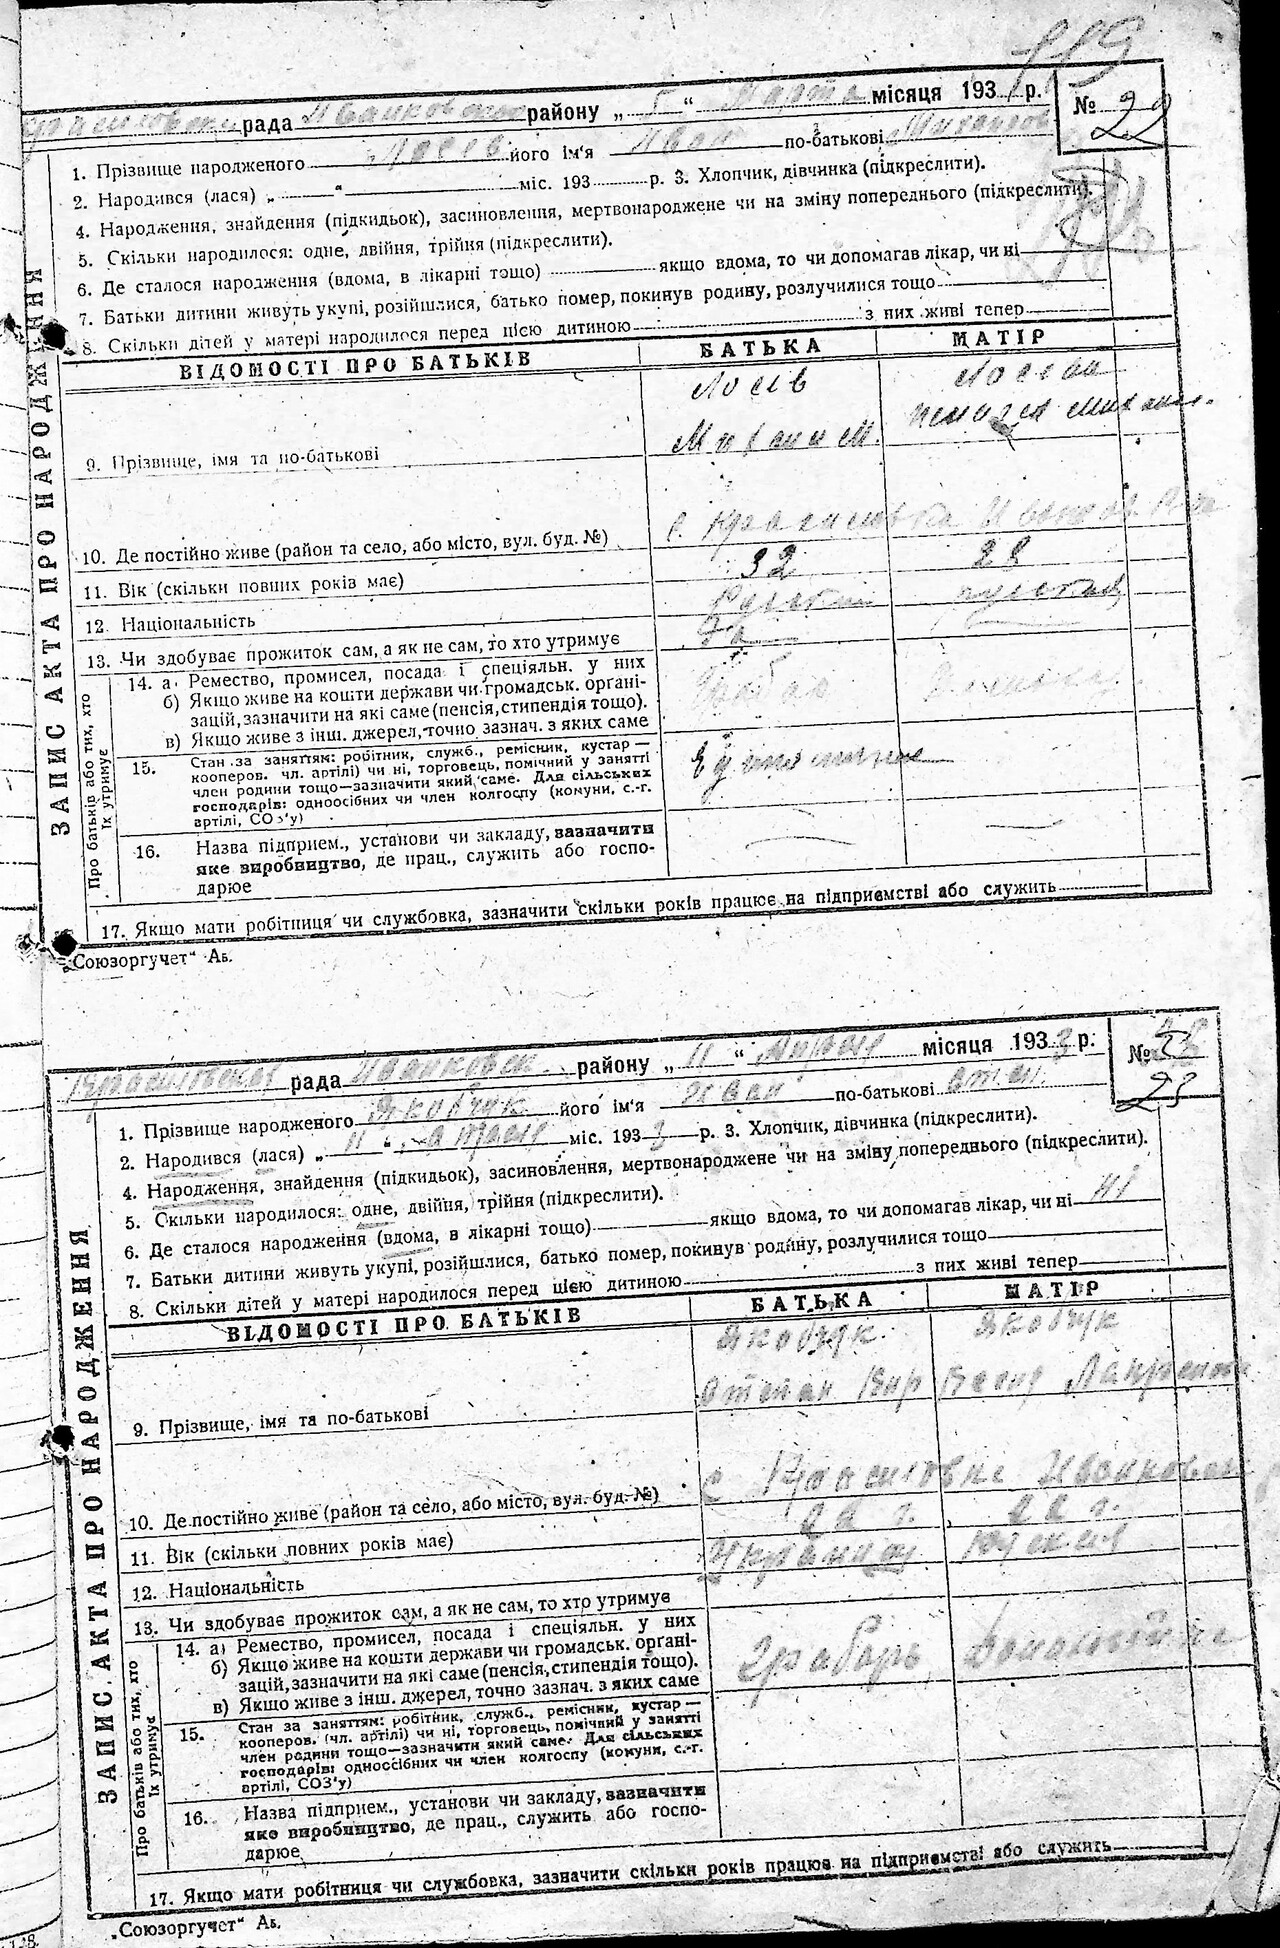 119
рада Иванковского району „ 5 “ Марта місяця 193 р. № 22
1. Прізвище народженого Лосів його ім'я Иван по-батькові
2. Народився (лася) „ “ міс. 193 р. 3. Хлопчик, дівчинка (підкреслити).
4. Народження, знайдення (підкидьок), засиновлення, мертвонароджене чи на зміну попереднього (підкреслити).
5. Скільки народилося: одне, двійня, трійня (підкреслити).
6. Де сталося народження (вдома, в лікарні тощо) якщо вдома, то чи допомагав лікар, чи ні
7. Батьки дитини живуть укупі, розійшлися, батько помер, покинув родину, розлучилися тощо
8. Скільки дітей у матері народилося перед цією дитиною з них живі тепер
ВІДОМОСТІ ПРО БАТЬКІВ БАТЬКА МАТІР
Лосів
9. Прізвище, імя та по-батькові
10. Де постійно живе (район та село, або місто, вул. буд. №) с.
11. Вік (скільки повних років має) 32 28
12. Національність
13. Чи здобуває прожиток сам, а як не сам, то хто утримує
14. а) Ремество, промисел, посада і спеціяльн. у них
б) Якщо живе на кошти держави чи громадськ. орґані-
зацій, зазначити на які саме (пенсія, стипендія тощо).
в) Якщо живе з інш. джерел, точно зазнач. з яких саме
15. Стан за заняттям: робітник, служб., ремісник, кустар —
кооперов. чл. артілі) чи ні, торговець, помічний у занятті
член родини тощо—зазначити який саме. Для сільських
господарів: одноосібних чи член колгоспу (комуни, с.-г.
артілі, СОЗ'у)
16. Назва підприєм., установи чи закладу, зазначити
яке виробництво, де прац., служить або госпо-
дарює
17. Якщо мати робітниця чи службовка, зазначити скільки років працює на підприємстві або служить
ЗАПИС АКТА ПРО НАРОДЖЕННЯ
Про батьків або тих, хто
їх утримує
„Союзоргучет“ Аб.
рада Иванковск. району „ 11 “ місяця 193 3 р. № 23
1. Прізвище народженого Якобчук його ім'я Иван по-батькові
2. Народився (лася) „ 11 “ міс. 193 3 р. 3. Хлопчик, дівчинка (підкреслити).
4. Народження, знайдення (підкидьок), засиновлення, мертвонароджене чи на зміну попереднього (підкреслити).
5. Скільки народилося: одне, двійня, трійня (підкреслити).
6. Де сталося народження (вдома, в лікарні тощо) якщо вдома, то чи допомагав лікар, чи ні ні
7. Батьки дитини живуть укупі, розійшлися, батько помер, покинув родину, розлучилися тощо
8. Скільки дітей у матері народилося перед цією дитиною з них живі тепер
ВІДОМОСТІ ПРО БАТЬКІВ БАТЬКА МАТІР
Якобчук Якобчук
9. Прізвище, імя та по-батькові
10. Де постійно живе (район та село, або місто, вул. буд. №) с
11. Вік (скільки повних років має) 22 г. 22 г.
12. Національність
13. Чи здобуває прожиток сам, а як не сам, то хто утримує
14. а) Ремество, промисел, посада і спеціяльн. у них
б) Якщо живе на кошти держави чи громадськ. орґані-
зацій, зазначити на які саме (пенсія, стипендія тощо).
в) Якщо живе з інш. джерел, точно зазнач. з яких саме
Грабарь
15. Стан за заняттям: робітник, служб., ремісник, кустар —
кооперов. (чл. артілі) чи ні, торговець, помічний у занятті
член родини тощо—зазначити який саме. Для сільських
господарів: одноосібних чи член колгоспу (комуни, с.-г.
артілі, СОЗ'у)
16. Назва підприєм., установи чи закладу, зазначити
яке виробництво, де прац., служить або госпо-
дарює
17. Якщо мати робітниця чи службовка, зазначити скільки років працює на підприємстві або служить
ЗАПИС АКТА ПРО НАРОДЖЕННЯ
Про батьків або тих, хто
їх утримує
„Союзоргучет“ Аб.